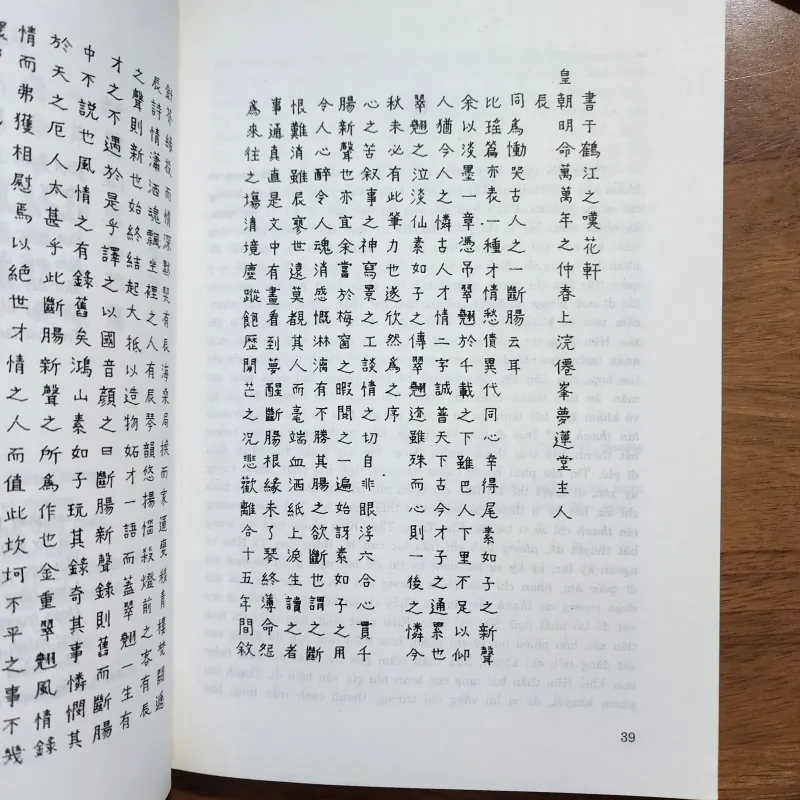 情而弗獲相慰焉以絕世才情之人而值此坎坷不平之事不幾
於天之厄人太甚乎此斷腸新聲之所爲作也金重翠翹風情錄
中不說也風情之有錄舊矣鴻山素如子玩其錄奇其事憐憫其
才之不遇於是乎譯之以國音顏之曰斷腸新聲錄則舊而斷腸
之聲則新也始終結起大抵以造物妬才一語而蓋翠翹一生有
辰詩情瀟洒魂飄坐裡之人有辰琴韻悠揚惱殺燈前之客有辰
緣投而情深默契有辰海棠局換而家運變青樓梵閣遍
爲來往之塲清境塵蹤飽歷閒芒之况悲歡離合十五年間敘
事通真直是文中有畫看到夢醒斷腸根緣未了琴終薄命怨
恨難消雖辰寥世遠莫覩其人而毫端血洒紙上淚生讀之者
令人心醉令人魂消感慨淋漓有不勝其腸之欲斷也謂之斷
腸新聲也亦宜余嘗於梅窗之暇閱之一遍始訝素如子之用
心之苦敘事之神寫景之工談情之切自非眼浮六合心貫千
秋未必有此筆力也遂欣然爲之序
翠翹之泣淡仙素如子之傳翠翹迹雖殊而心則一後之憐今
人猶今人之憐古人才情二字誠普天下古今才子之通累也
余以淡墨一章憑吊翠翹於千載之下雖巴人下里不足以仰
比瑤篇亦表一種才情愁債異代同心幸得尾素如子之新聲
同爲慟哭古人之一斷腸云耳
辰
皇朝明命萬萬年之仲春上浣僊峯夢蓮堂主人
書于鶴江之嘆花軒
39